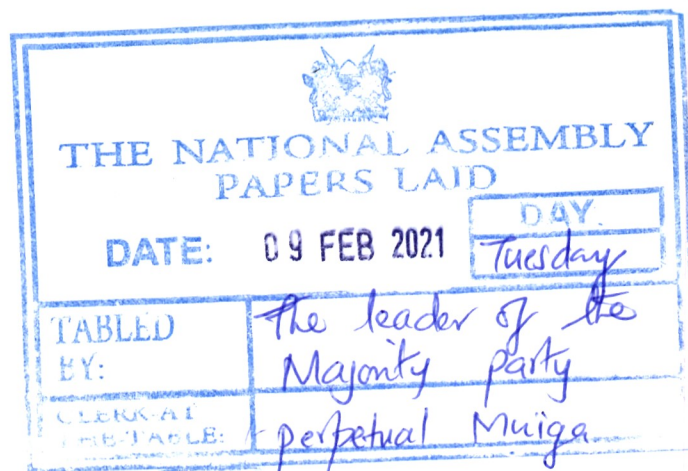 THE NATIONAL ASSEMBLY
PAPERS LAID
DATE: 09 FEB 2021
DAY.
Tuesday
TABLED
BY:
The leader of the
Majority party
CLERK-AT
THE-TABLE:
perpetual Muiga